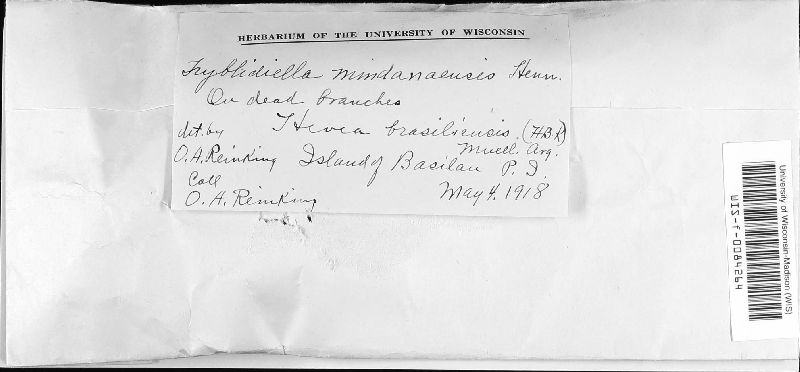 HERBARIUM OF THE UNIVERSITY OF WISCONSIN
Tryblidiella mindanaensis Henn.
On dead branches
Hevea brasiliensis. (H.B.K)
Muell. Arg.
det. by
O.A. Reinking
Island of Basilan P.I.
Coll
O.A. Reinking
May 4. 1918
University of Wisconsin-Madison (WIS)
WIS-f-0084264